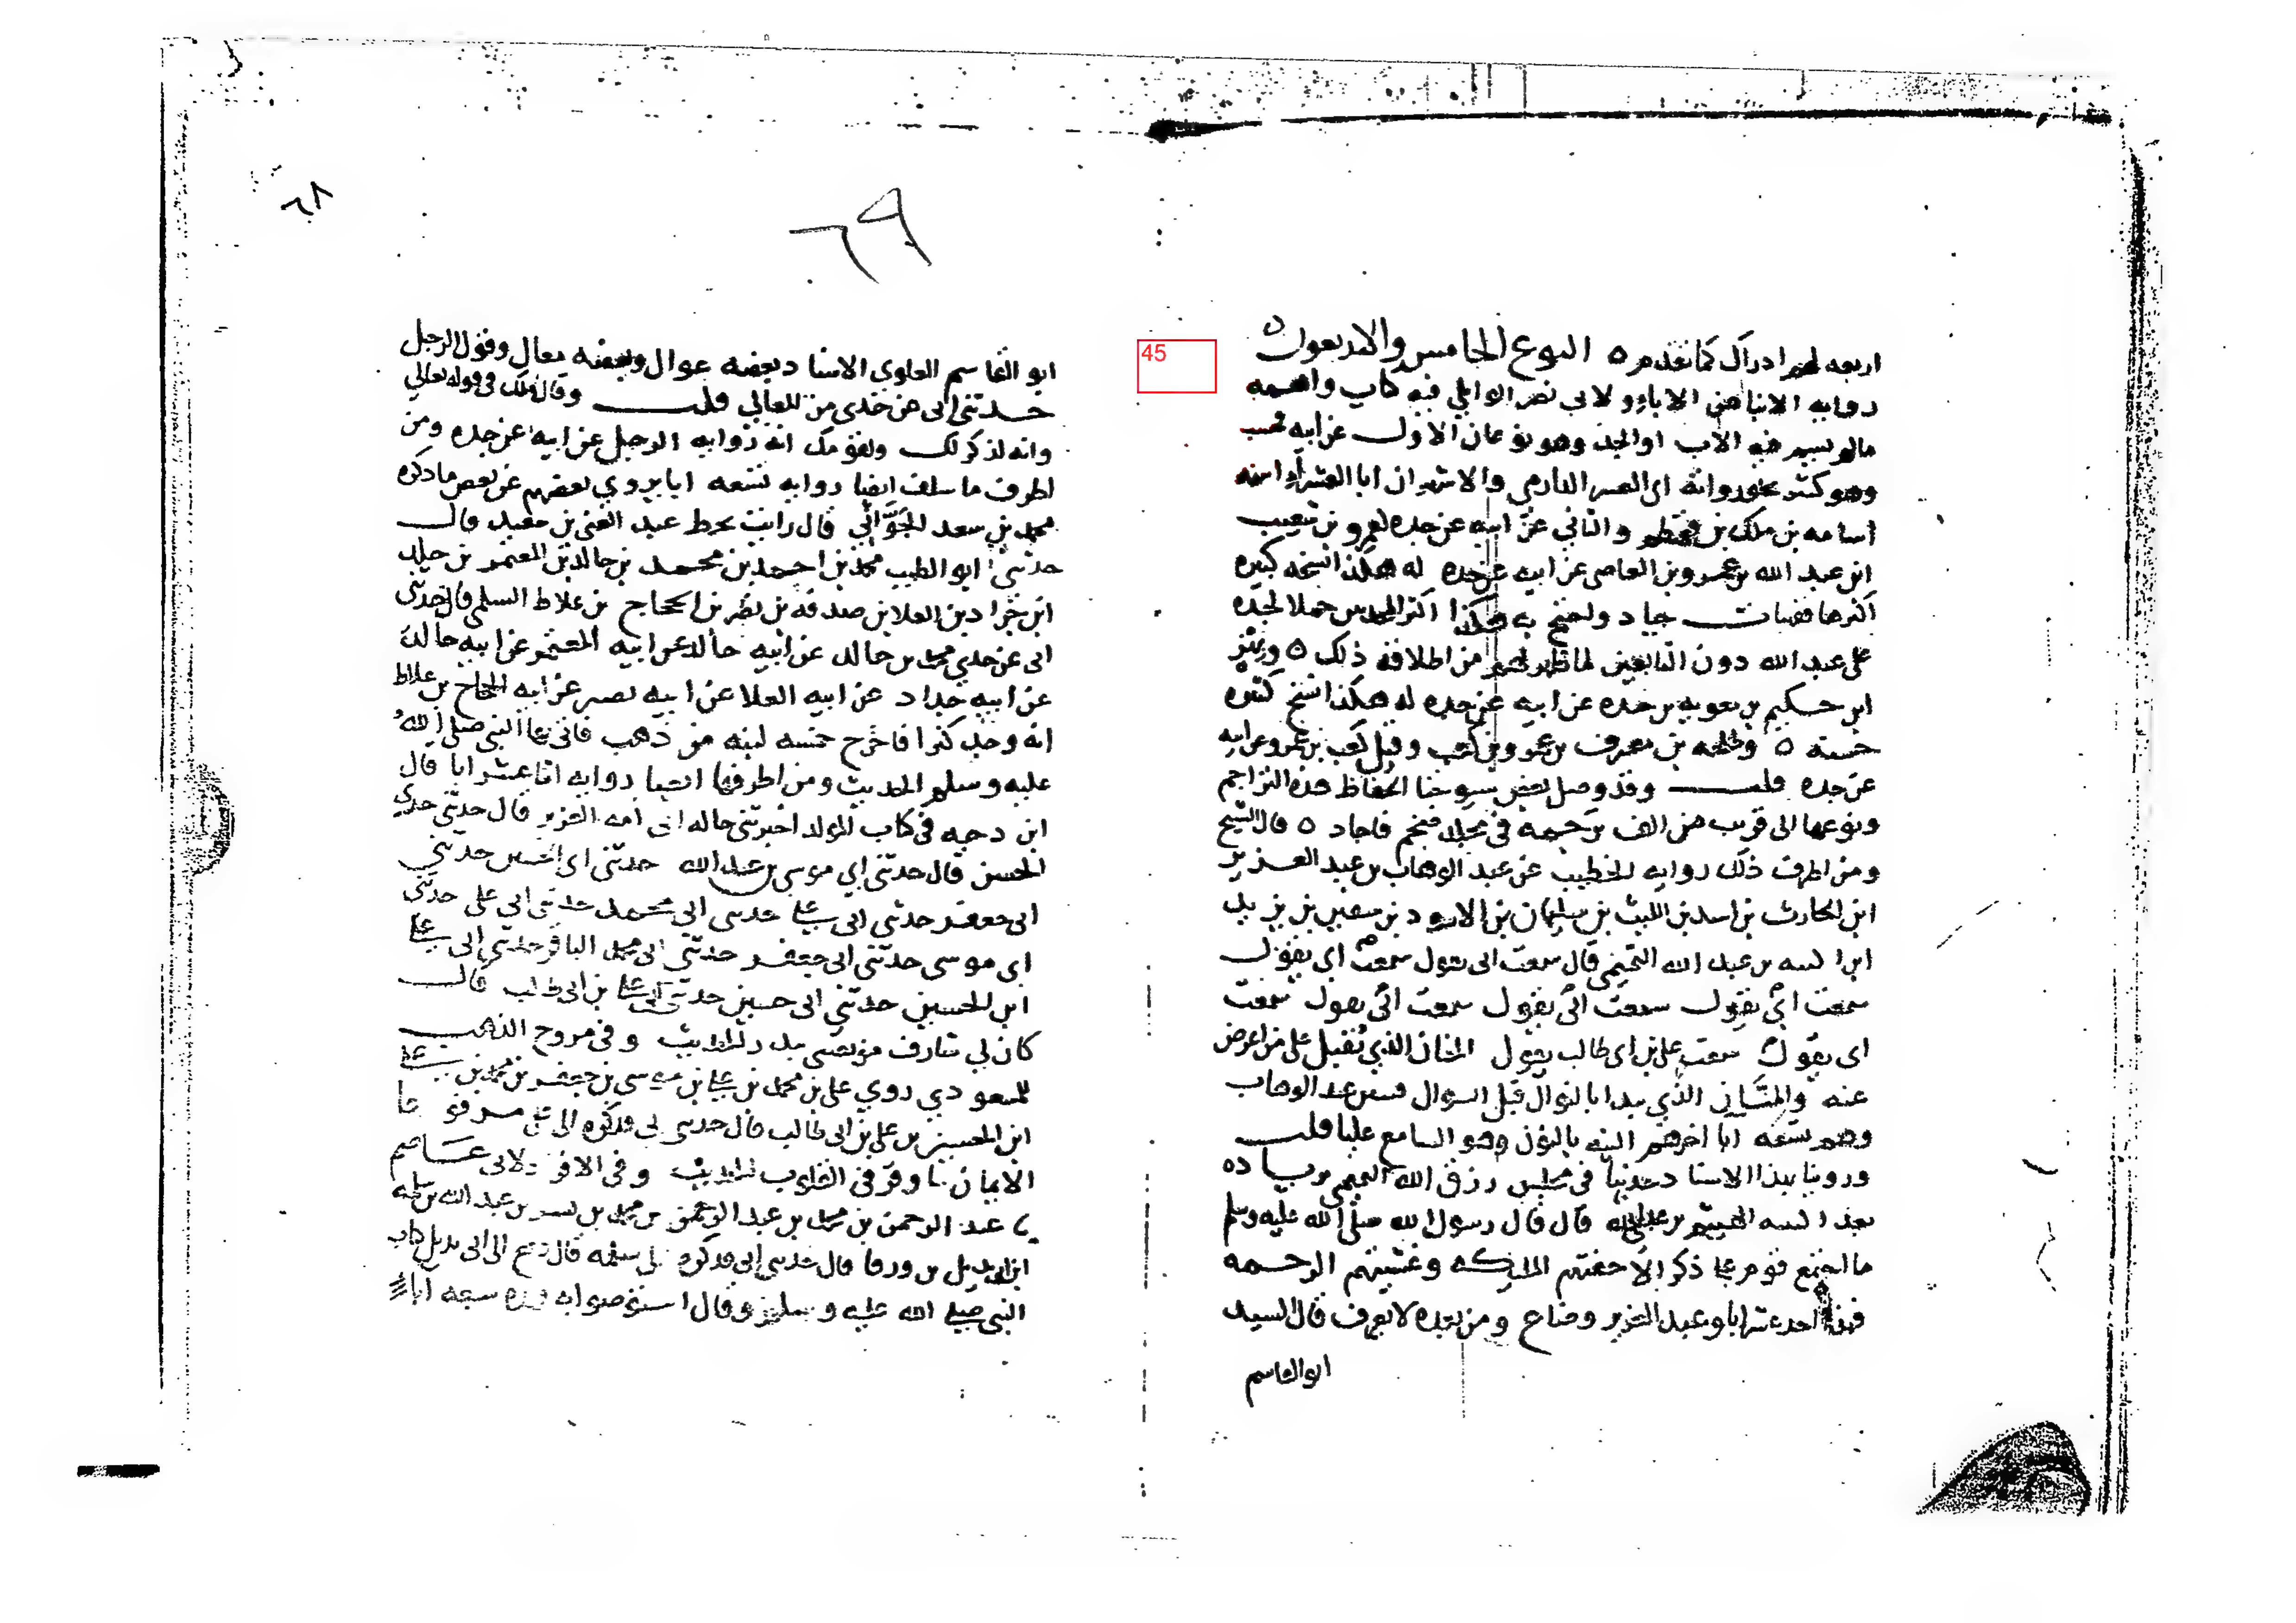 ٦٨
٦٩
45
اربعه لهم ادراك كما تقدم ه النوع الخامس والاربعون ه
رواية الابناء عن الاباء ولابي نصر الوايلي فيه كتاب واهمه
مالم يسم فيه الاب او الجد وهو نوعان الاول عن ابيه فحسب
وهو كثير نحو رواية ابي العشرا الدارمي والاشهر ان ابا العشرا اسمه
اسامه بن ملك بن قهطم والثاني عن ابيه عن جده لعمرو بن شعيب
ابن عبد الله بن عمرو بن العاصي عن ابيه عن جده له هكذا نسخه كبيره
اكثرها فقهيات جياد واحتج به هكذا اكثر المحدثين حملا لجده
على عبد الله دون التابعين لما ظهر لهم من اطلاقه ذلك ه وبهز
ابن حكيم بن معويه بن حيده عن ابيه عن جده له هكذا نسخ كثيره
حسنه ه وطلحه بن مصرف بن عمرو بن كعب وقيل كعب بن عمرو عن ابيه
عن جده قلت وقد وصل بعض شيوخنا الحفاظ هذه التراجم
ونوعها الى قريب من الف ترجمه في مجلد ضخم فاجاد ه قال الشيخ
ومن اطرف ذلك روايه الخطيب عن عبد الوهاب بن عبد العزيز
ابن الحارث بن اسد بن الليث بن سليمان بن الاسود بن سفين بن يزيد
ابن اكينه بن عبد الله التميمي قال سمعت ابي يقول سمعت ابي يقول
سمعت ابي يقول سمعت ابي يقول سمعت ابي يقول سمعت
ابي يقول سمعت علي بن ابي طالب يقول الحنان الذي يقبل على من اعرض
عنه والمنان الذي يبدا بالنوال قبل السوال فبين عبد الوهاب
وهم تسعه ابا اخرهم اكينه بالنون وهو السامع عليا قلت
وروينا بهذا الاسناد حديثا في مجلس رزق الله التميمي بزياده
بعد اكينه الهيثم بن عبد الله قال قال رسول الله صلى الله عليه وسلم
ما اجتمع قوم على ذكر الا حفتهم المليكه وغشيتهم الرحمه
فهذا احد عشر ابا وعبد العزيز وضاع ومن بعده لا يعرف قال السيد
ابو القاسم
ابو القاسم العلوي الاسناد بعضه عوال وبعضه معال وقول الرجل
حدثني ابي عن جدي من المعالي قلت وقال ملك في قوله تعالى
وانه لذكر لك ولقومك انه روايه الرجل عن ابيه عن جده ومن
اطرف ما سلف ايضا روايه تسعه ابا يروي بعضهم عن بعض ما ذكره
محمد بن سعد الجواني قال رايت بخط عبد الغني بن سعيد قال
حدثني ابو الطيب محمد بن احمد بن محمد بن خالد بن المعتمر بن خلد
ابن جراد بن العلا بن صدقه بن نصر بن الحجاج بن علاط السلمي قال حدثني
ابي عن جدي محمد بن خالد عن ابيه خالد عن ابيه المعتمر عن ابيه خالد
عن ابيه جراد عن ابيه العلا عن ابيه نصر عن ابيه الحجاج بن علاط
انه وجد كنزا فاخرج خمسه لبنه من ذهب فاتى بها النبي صلى الله
عليه وسلم الحديث ومن اطرفها ايضا روايه اثنا عشر ابا قال
ابن دحيه في كتاب المولد اخبرتني خاله ابي امه العزيز قال حدثني جدي
الحسن قال حدثني ابي موسى بن عبد الله حدثني ابي الحسين حدثني
ابي جعفر حدثني ابي علي حدثني ابي محمد حدثني ابي علي حدثني
ابي موسى حدثني ابي جعفر حدثني ابي محمد الباقر حدثني ابي علي
ابن الحسين حدثني ابي حسين حدثني ابي علي بن ابي طالب قال
كان لي شارف من نصيبي ببدر الحديث وفي مروج الذهب
للمسعودي روي علي بن محمد بن علي بن موسى بن جعفر بن محمد بن علي
ابن الحسين بن علي بن ابي طالب قال حدثني ابي وذكره الى علي مرفوعا
الايمان ما وقر في القلوب الحديث وفي الافراد لابن عاصم
عبد الرحمن بن محمد بن عبد الرحمن بن محمد بن بشر بن عبد الله بن سلمه
ابن بديل بن ورقا قال حدثني ابي وذكره الى سلمه قال دفع الي ابي بديل كتاب
النبي صلى الله عليه وسلم وقال استوصوا به فهذه سبعه ابا